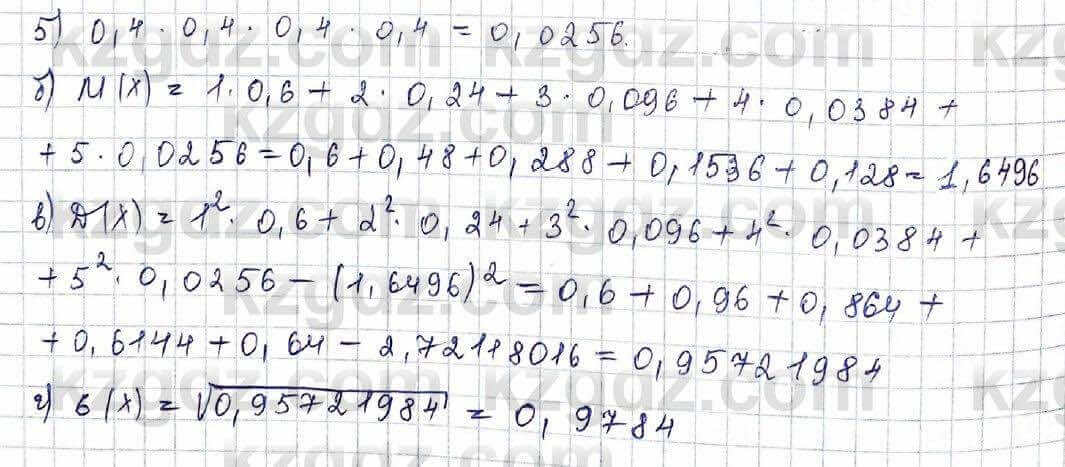 5) 0,4 · 0,4 · 0,4 · 0,4 = 0,0256.
б) M(X) = 1 · 0,6 + 2 · 0,24 + 3 · 0,096 + 4 · 0,0384 +
+ 5 · 0,0256 = 0,6 + 0,48 + 0,288 + 0,1536 + 0,128 = 1,6496
в) D(X) = 1² · 0,6 + 2² · 0,24 + 3² · 0,096 + 4² · 0,0384 +
+ 5² · 0,0256 − (1,6496)² = 0,6 + 0,96 + 0,864 +
+ 0,6144 + 0,64 − 2,72118016 = 0,95721984
г) б(X) = √0,95721984 = 0,9784
kzgdz.com